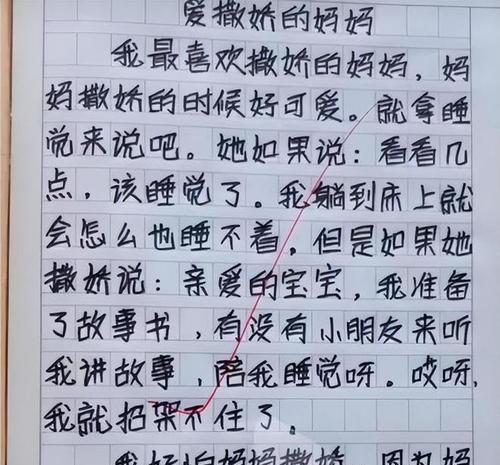 爱撒娇的妈妈
我最喜欢撒娇的妈妈，妈
妈撒娇的时候好可爱。就拿睡
觉来说吧。她如果说：看看几
点，该睡觉了。我躺到床上就
会怎么也睡不着，但是如果她
撒娇说：亲爱的宝宝，我准备
了故事书，有没有小朋友来听
我讲故事，陪我睡觉呀。哎呀，
我就招架不住了。
我好怕妈妈撒娇，因为妈